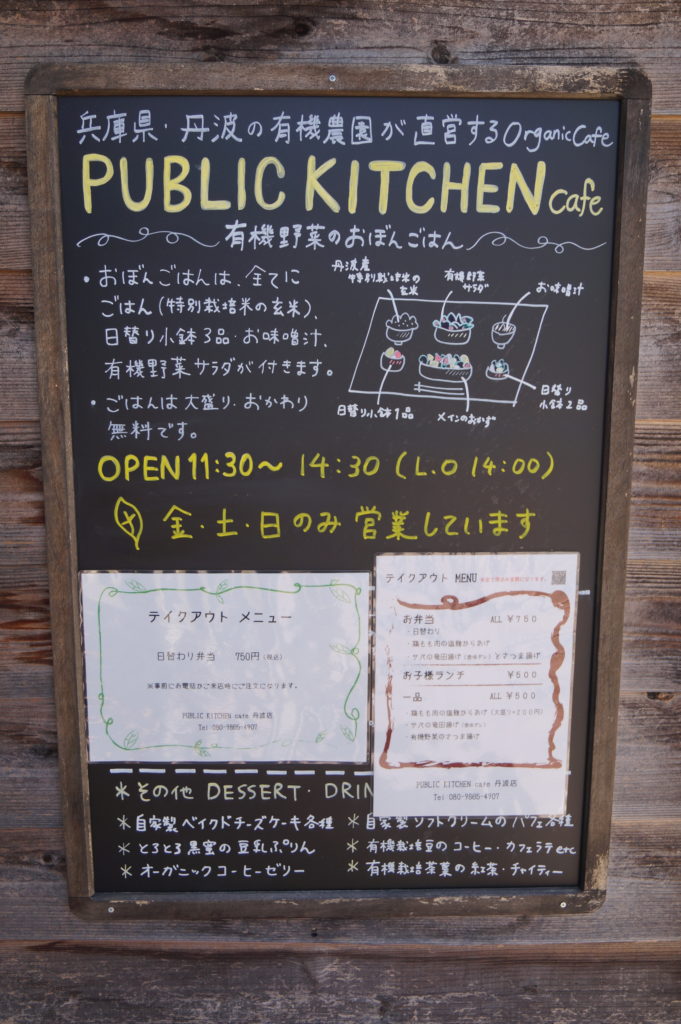 兵庫県・丹波の有機農園が直営するOrganicCafe
PUBLIC KITCHEN cafe
有機野菜のおぼんごはん
・おぼんごはんは、全てに
ごはん(特別栽培米の玄米)、
日替り小鉢3品・お味噌汁、
有機野菜サラダが付きます。
・ごはんは大盛り・おかわり
無料です。
丹波産
特別栽培米の
玄米
有機野菜
サラダ
お味噌汁
日替り小鉢1品
メインのおかず
日替り
小鉢2品
OPEN 11:30〜 14:30 (L.O 14:00)
金・土・日のみ営業しています
テイクアウト メニュー
日替わり弁当 750円(税込)
※事前にお電話かご来店時にご注文になります。
PUBLIC KITCHEN cafe 丹波店
Tel 080-9865-4907
テイクアウト MENU
お弁当 ALL ¥750
・日替わり
・鶏もも肉の塩麹からあげ
・サバの竜田揚げ とさつま揚げ
お子様ランチ ¥500
一品 ALL ¥500
・鶏もも肉の塩麹からあげ (大盛り+200円)
・サバの竜田揚げ
・有機野菜のさつま揚げ
PUBLIC KITCHEN cafe 丹波店
Tel 080-9865-4907
*その他 DESSERT・DRIN
*自家製ベイクドチーズケーキ各種
*とろとろ黒蜜の豆乳ぷりん
*オーガニックコーヒーゼリー
*自家製ソフトクリームのパフェ各種
*有機栽培豆のコーヒー・カフェラテetc
*有機栽培茶葉の紅茶・チャイティー